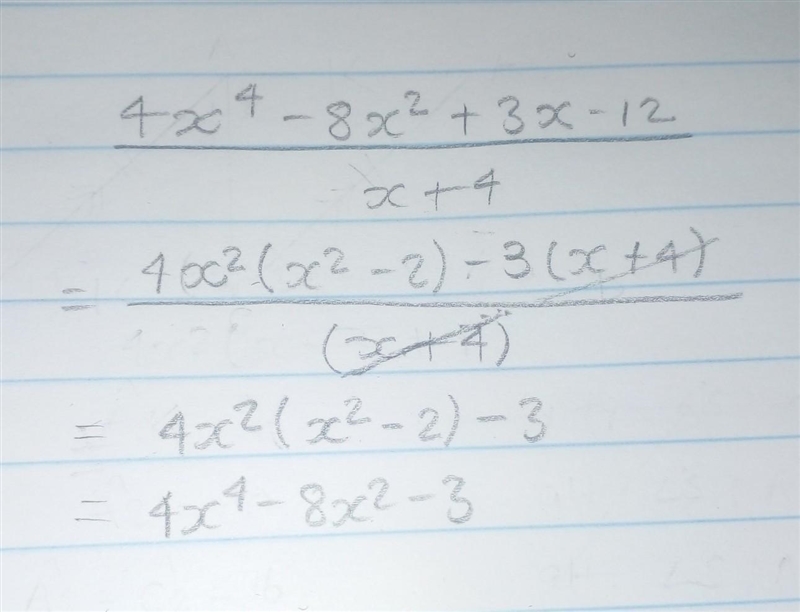 4x⁴ - 8x² + 3x - 12
x + 4
= 4x²(x² - 2) - 3(x + 4)
(x + 4)
= 4x²(x² - 2) - 3
= 4x⁴ - 8x² - 3